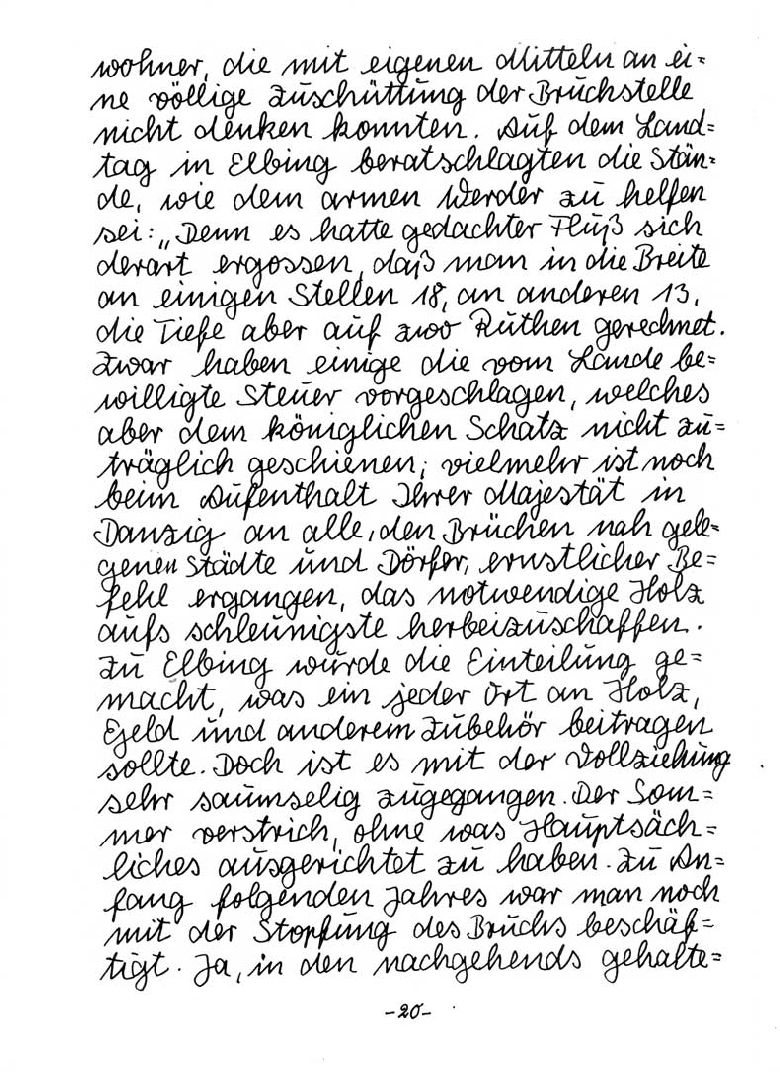 wohner, die mit eigenen Mitteln an ei=
ne völlige Zuschüttung der Bruchstelle
nicht denken konnten. Auf dem Land=
tag in Elbing beratschlagten die Stän=
de, wie dem armen Werder zu helfen
sei: „Denn es hatte gedachter Fluß sich
derart ergossen, daß man in die Breite
an einigen Stellen 18, an anderen 13,
die Tiefe aber auf zwo Ruthen gerechnet.
Zwar haben einige die vom Lande be=
willigte Steuer vorgeschlagen, welches
aber dem königlichen Schatz nicht zu=
träglich geschienen; vielmehr ist noch
beim Aufenthalt Ihrer Majestät in
Danzig an alle, den Brüchen nah gele=
genen Städte und Dörfer, ernstlicher Be=
fehl ergangen, das notwendige Holz
aufs schleunigste herbeizuschaffen.
Zu Elbing wurde die Einteilung ge=
macht, was ein jeder Ort an Holz,
Geld und anderem Zubehör beitragen
sollte. Doch ist es mit der Vollziehung
sehr saumselig zugegangen. Der Som=
mer verstrich, ohne was Hauptsäch=
liches ausgerichtet zu haben. Zu An=
fang folgenden Jahres war man noch
mit der Stopfung des Bruchs beschäf=
tigt. Ja, in den nachgehends gehalte=
-20-